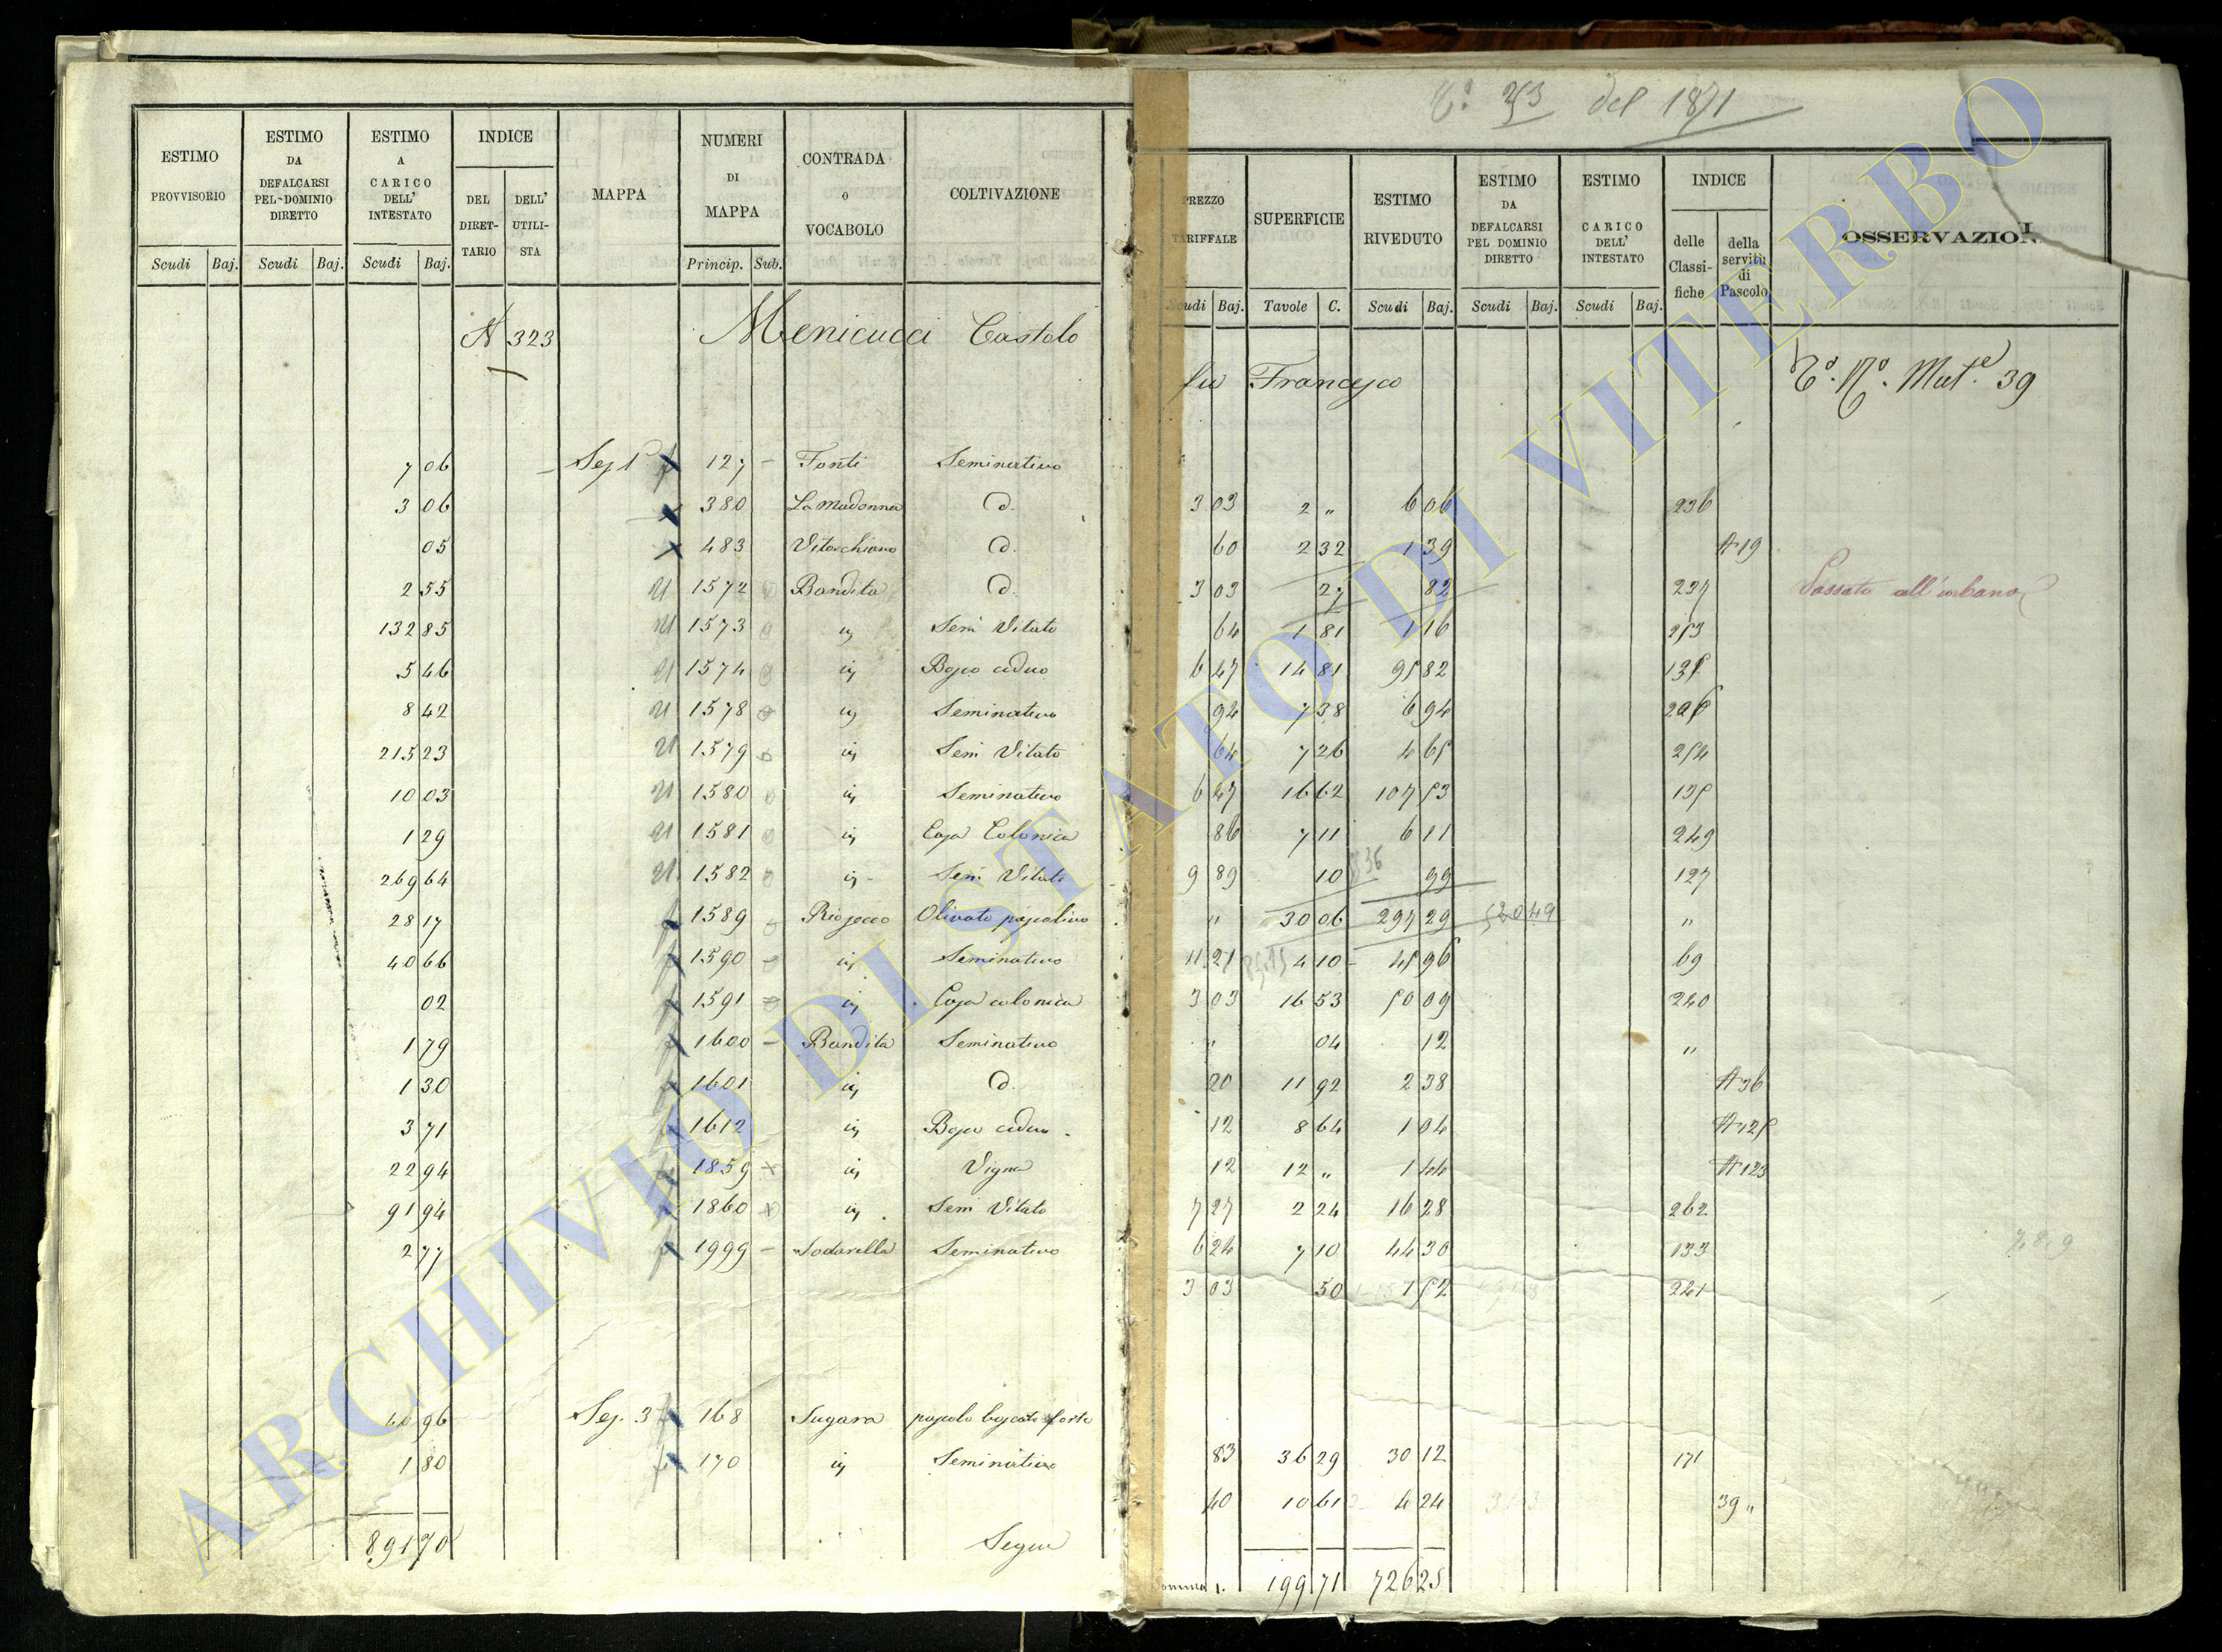 ESTIMO PROVVISORIO Scudi Baj. ESTIMO DA DEFALCARSI PEL DOMINIO DIRETTO Scudi Baj. ESTIMO A CARICO DELL' INTESTATO Scudi Baj. INDICE DEL DIRET-TARIO DELL' UTILI-STA MAPPA NUMERI DI MAPPA Princip. Sub. CONTRADA o VOCABOLO COLTIVAZIONE
N 323 Menicucci Castolo
7 06 Sez 1ª 127 Fonti Seminativo
3 06 380 La Madonna d.
05 483 Vitorchiano d.
2 55 1572 Bandita d.
132 85 1573 Sem Vitato
5 46 1574 Bosco ceduo
8 42 1578 Seminativo
215 23 1579 Sem Vitato
10 03 1580 Seminativo
1 29 1581 Casa Colonica
269 64 1582 Sem Vitato
28 17 1589 Riosecco Olivato pascolivo
40 66 1590 Seminativo
02 1591 Casa colonica
1 79 1600 Bandita Seminativo
1 30 1601 d.
3 71 1612 Bosco ceduo
22 94 1859 Vigna
91 94 1860 Sem Vitato
2 77 1999 Sodarella Seminativo
40 96 Sez. 3ª 168 Sugara pascolo boscato forte
1 80 170 Seminativo
891 70 Segue
del 1871
PREZZO TARIFFALE Scudi Baj. SUPERFICIE Tavole C. ESTIMO RIVEDUTO Scudi Baj. ESTIMO DA DEFALCARSI PEL DOMINIO DIRETTO Scudi Baj. ESTIMO CARICO DELL' INTESTATO Scudi Baj. INDICE delle Classi-fiche della servitù di Pascolo OSSERVAZIONI
fu Francesco Mut.e 39
3 03 2 " 6 06 236
60 2 32 1 39 A 19
3 03 27 82 237 Passato all'urbano
64 1 81 1 16 253
6 47 14 81 95 82 135
94 7 38 6 94
64 7 26 4 65 254
6 47 16 62 107 53 135
86 7 11 6 11 249
9 89 10 99 127
" 30 06 297 29 520 49 "
11 21 4 10 45 96 69
3 03 16 53 50 09 240
" 04 12 "
20 11 92 2 38 A 36
12 8 64 1 04 A 125
12 12 " 1 44 A 123
7 27 2 24 16 28 262
6 24 7 10 44 30 133
3 03 50 1 52 241
83 36 29 30 12 171
40 10 61 4 24 39 "
199 71 726 25
ARCHIVIO DI STATO DI VITERBO